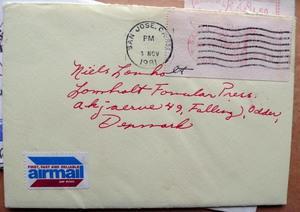 SAN JOSE, CA
PM
3 NOV
1981
Niels Lomholt
Lomholt Formular Press.
Akjaervej 49, Falling, Odder,
Denmark
FIRST, FAST AND RELIABLE
airmail